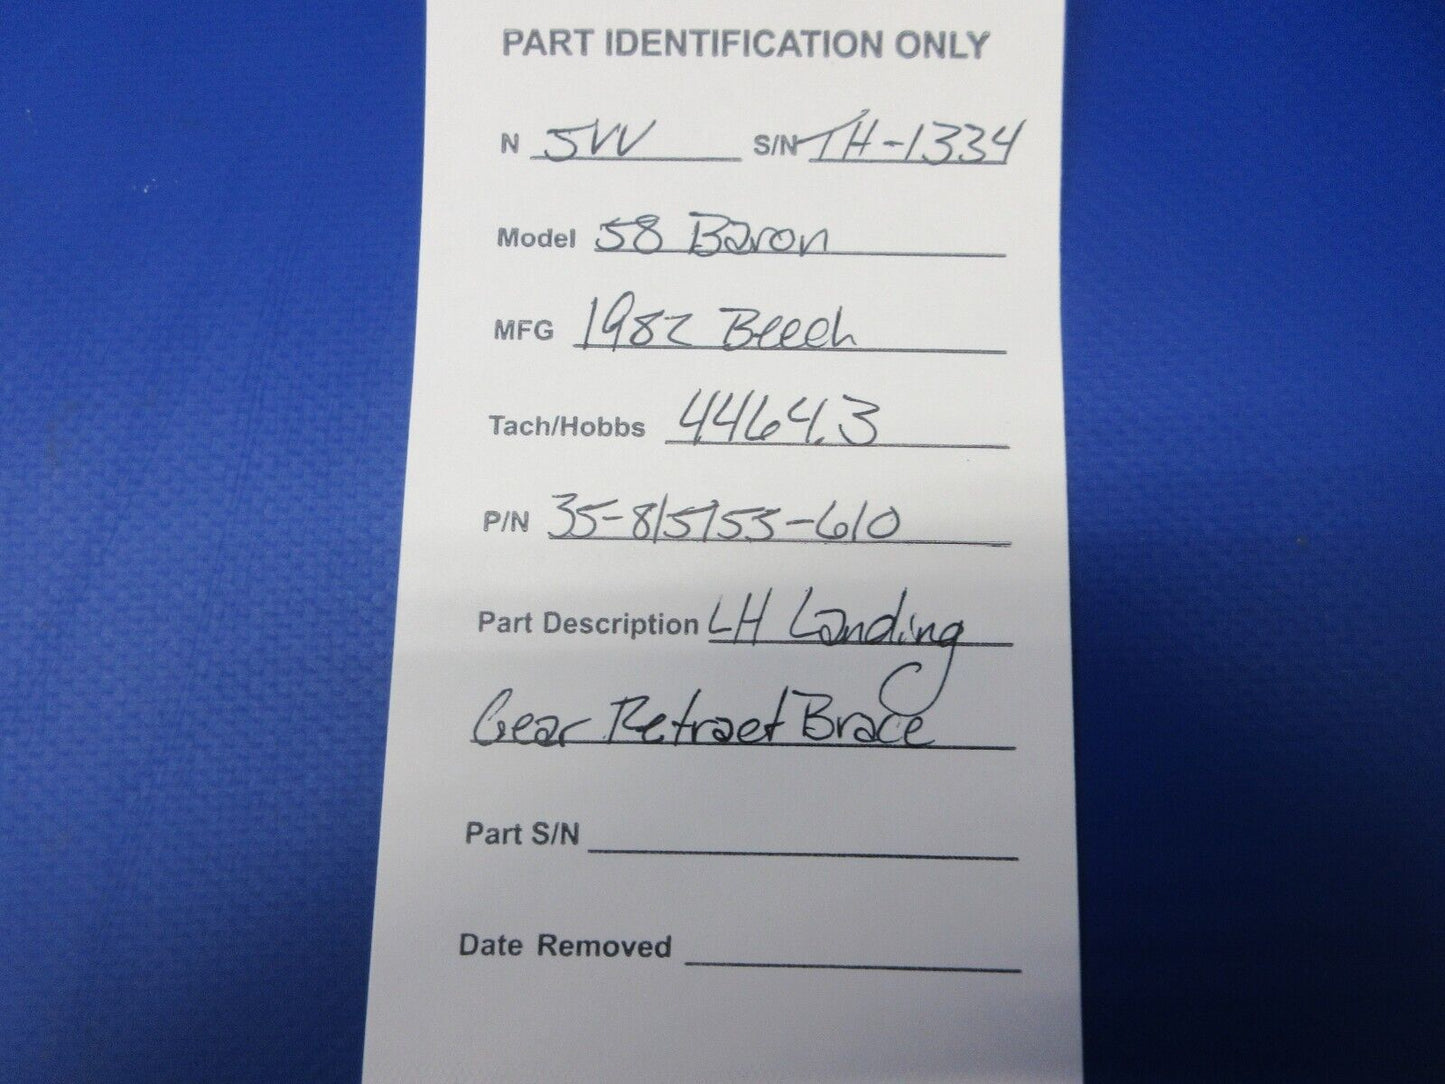 PART IDENTIFICATION ONLY
N 5VV S/N TH-1334
Model 58 Baron
MFG 1982 Beech
Tach/Hobbs 4464.3
P/N 35-815153-610
Part Description LH Landing
Gear Retract Brace
Part S/N
Date Removed